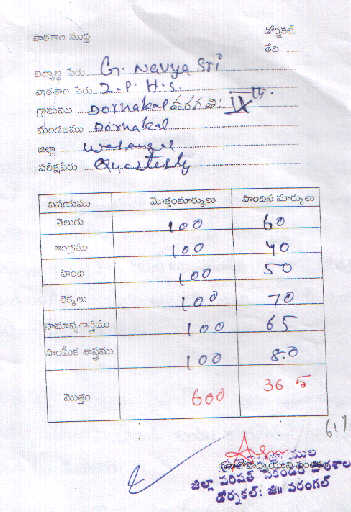 పాఠశాల ముద్ర డోర్నకల్
తేది ......
విద్యార్థి పేరు G. Navya Sri
పాఠశాల పేరు Z.P.H.S.
గ్రామము Dornakal తరగతి: IX th
మండలము Dornakal
జిల్లా Warangal
పరీక్షపేరు Quarterly
విషయము మొత్తంమార్కులు పొందిన మార్కులు
తెలుగు 100 60
ఆంగ్లము 100 40
హింది 100 50
లెక్కలు 100 70
సామాన్యశాస్త్రము 100 65
సాంఘిక శాస్త్రము 100 80
మొత్తం 600 365
జిల్లా పరిషత్ సెకండరీ పాఠశాల
డోర్నకల్: జిll వరంగల్